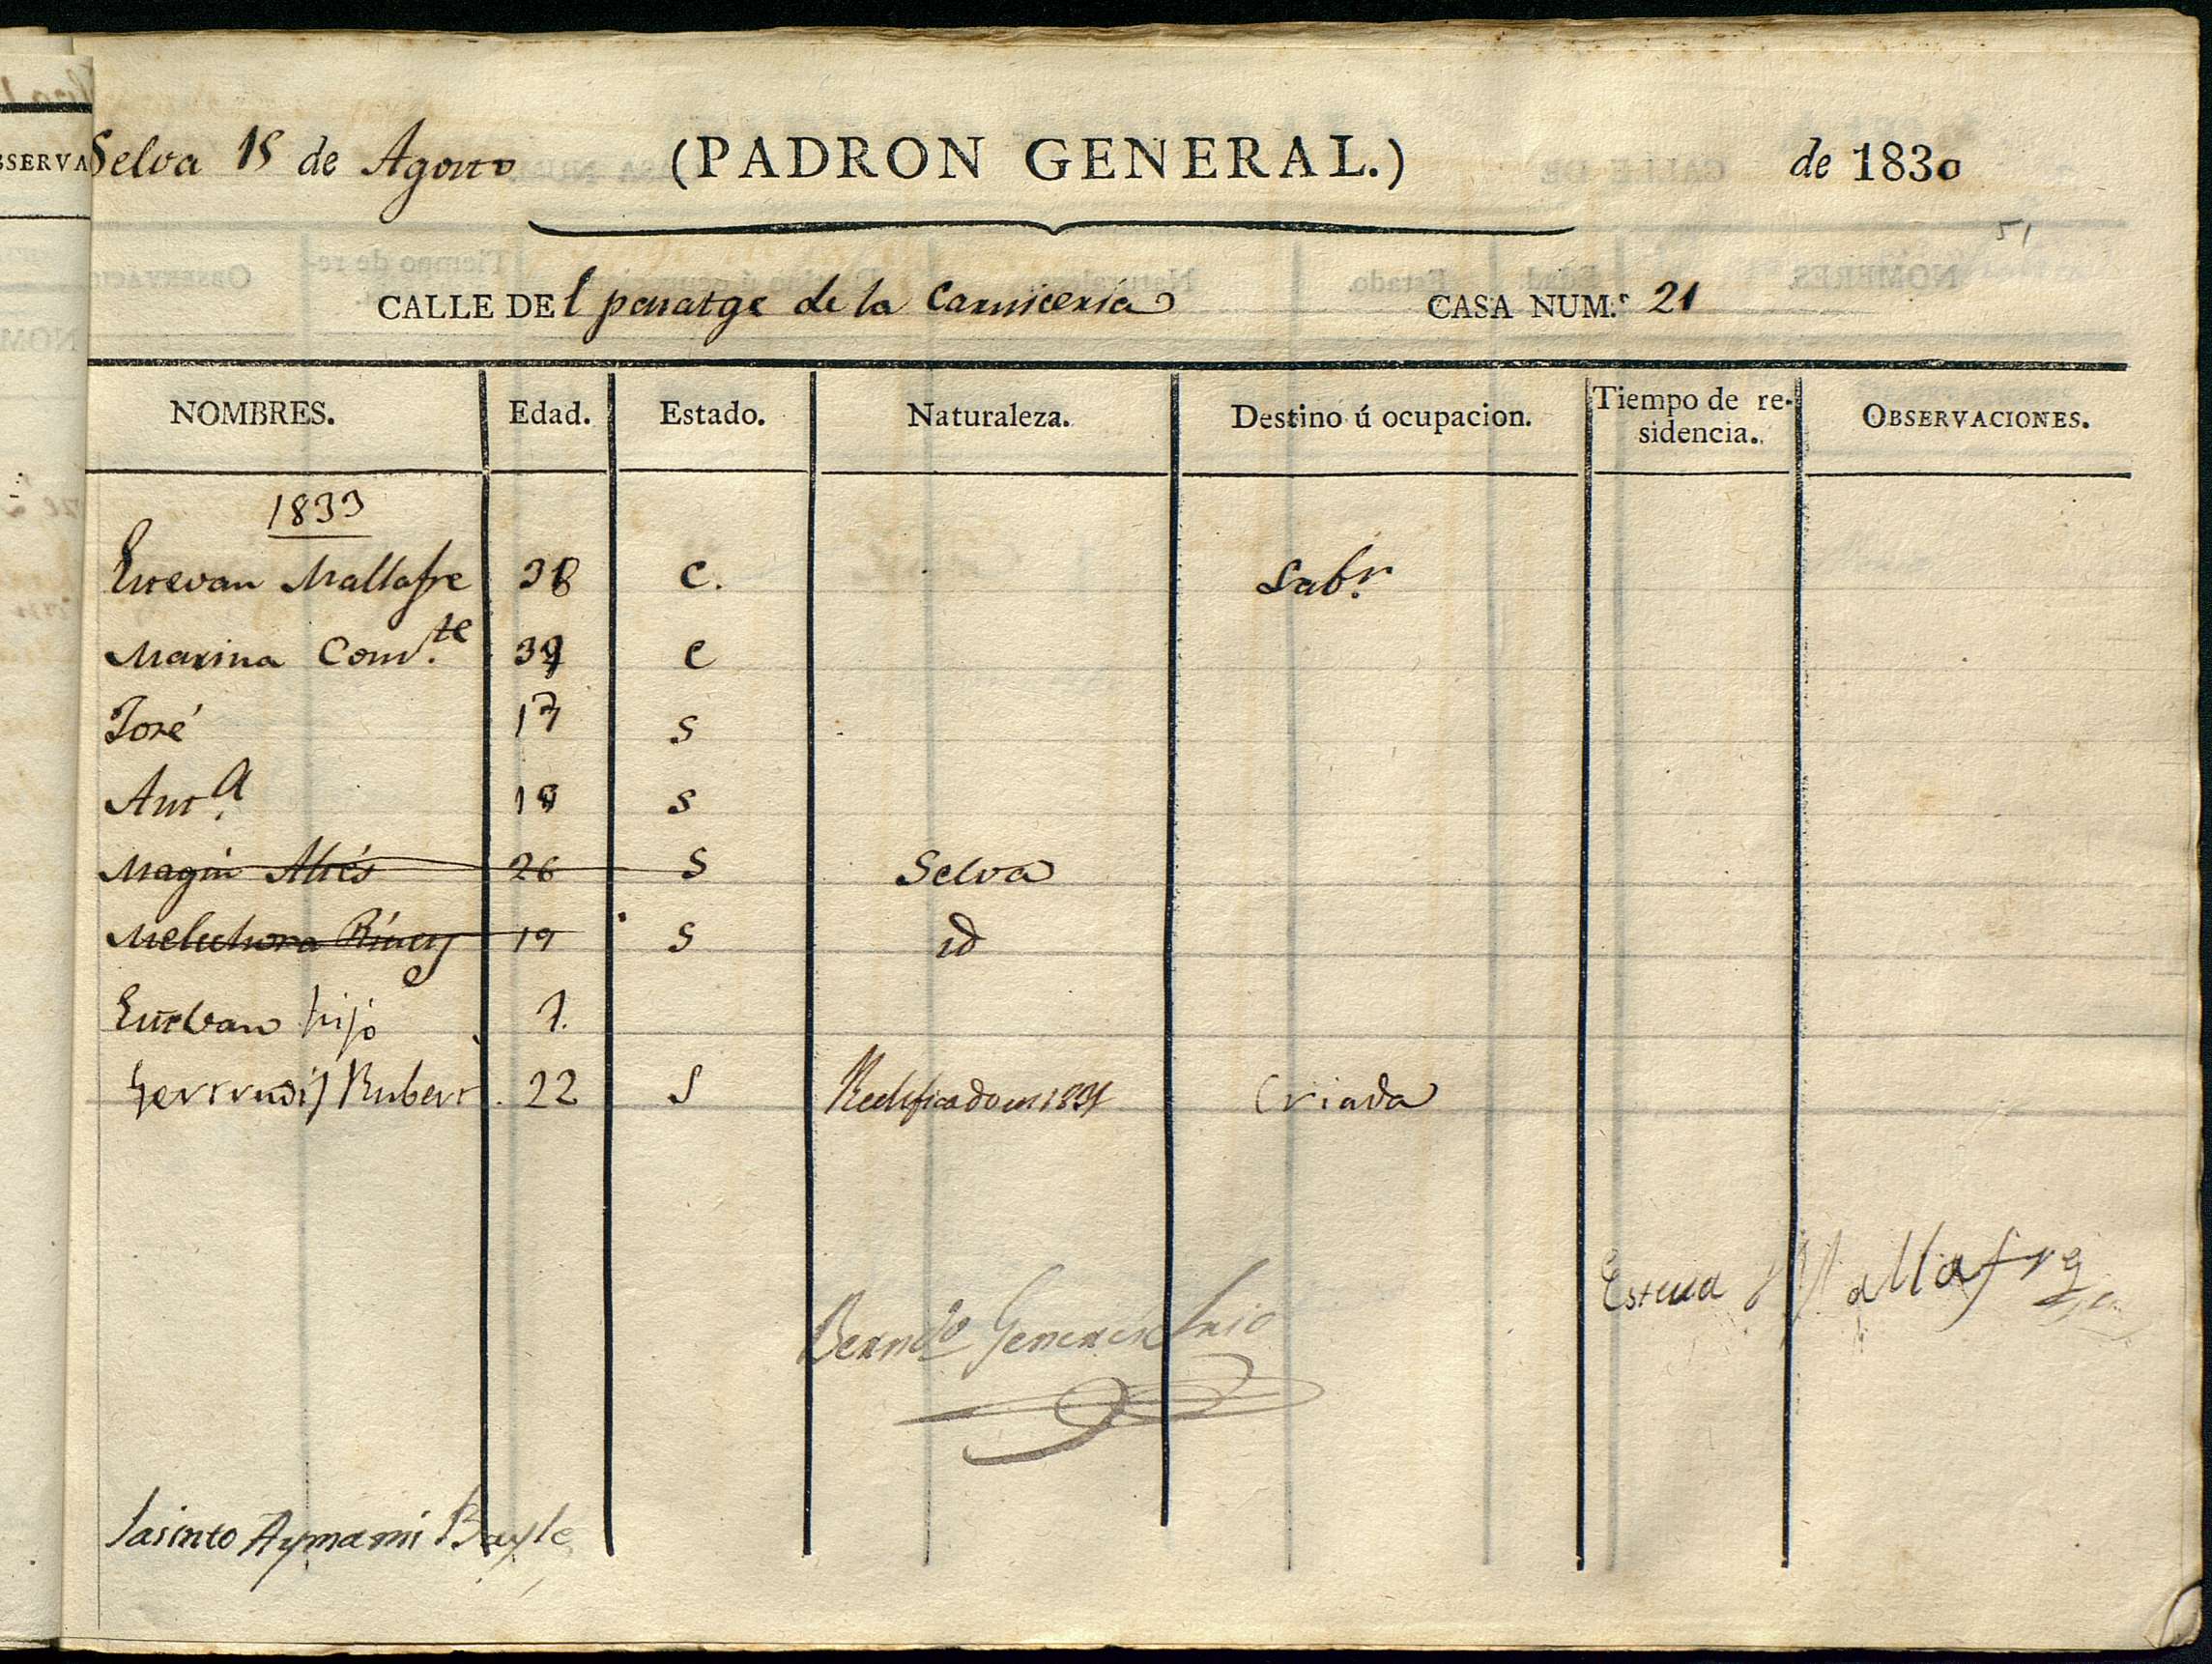 Selva 15 de Agosto (PADRON GENERAL.) de 1830
51
CALLE DEl pasatge de la Carniceria CASA NUM.º 21
NOMBRES. Edad. Estado. Naturaleza. Destino ú ocupacion. Tiempo de re-sidencia. OBSERVACIONES.
1833
Estevan Mallafre 38 C. Labr.
Marina Cons.te C
José 17 S
Ant.a S
Magin 26 S Selva
Melchora 19 S id
Estevan hijo 7.
Gertrudis Rubert 22 S Rectificado en Criada
Esteva Mallafre
Bern.do
Jasinto Aymami Bayle